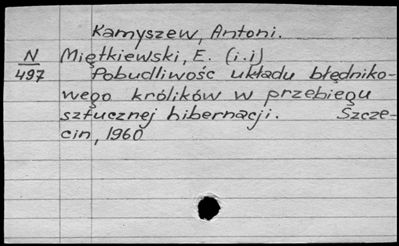 Kamyszew, Antoni.
N Miętkiewski, E. (i.i)
497 Pobudliwość układu błędniko-
wego królików w przebiegu
sztucznej hibernacji. Szcze-
cin, 1960